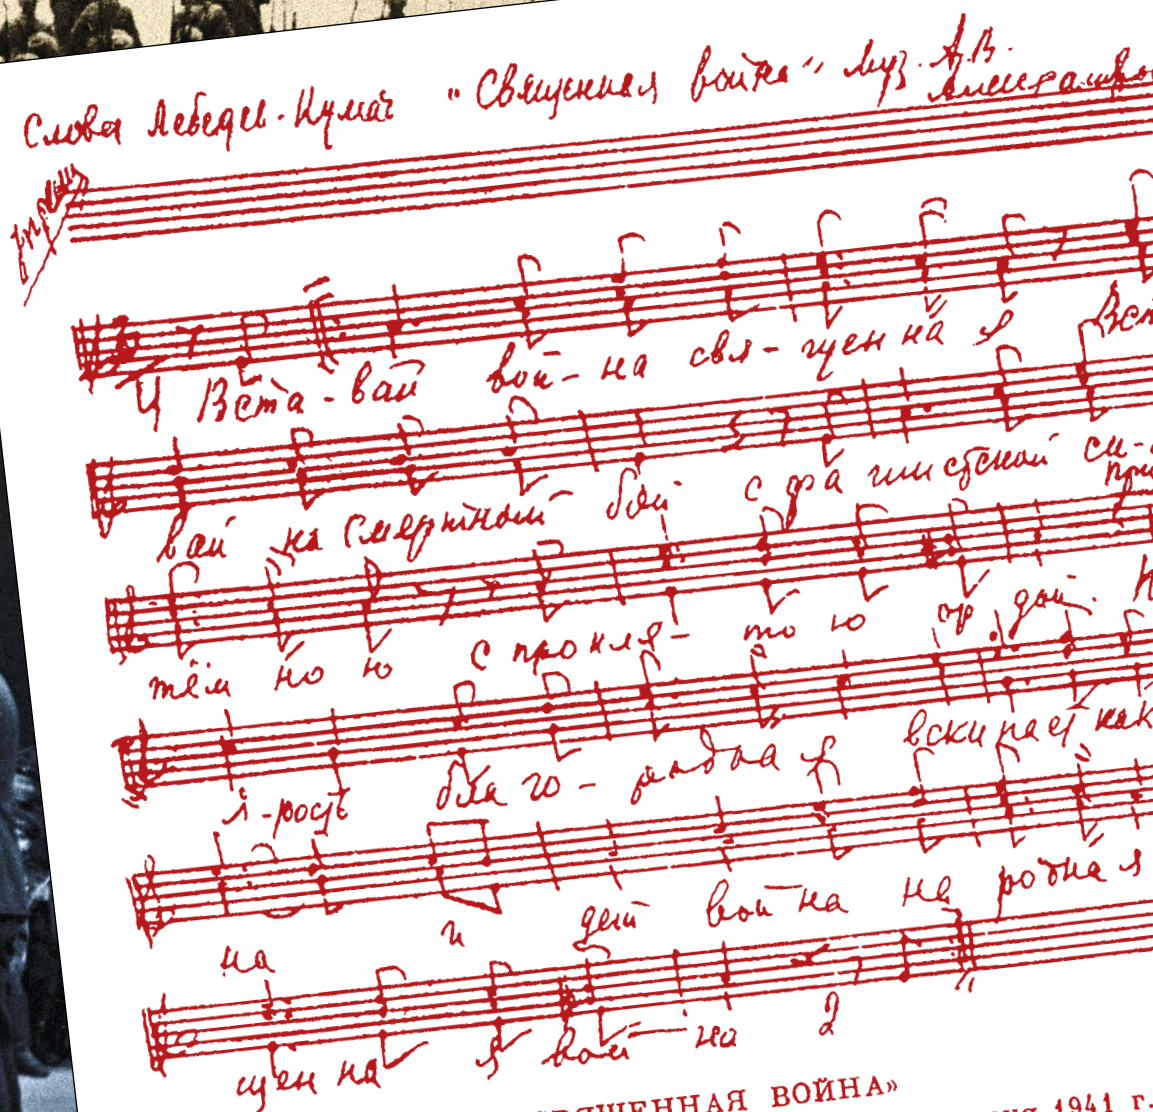 Слова Лебедев-Кумач "Священная война" Муз. А.В.
Александров
Вста-вай вой-на свя-щенная Вст
вай на смертный бой с фашистской си-
тём ною с прокля-тою ордой. П
я-рость благо-родная вскипает как
на и дёт война народная
щенная вой-на 2
СВЯЩЕННАЯ ВОЙНА»
1941 г.